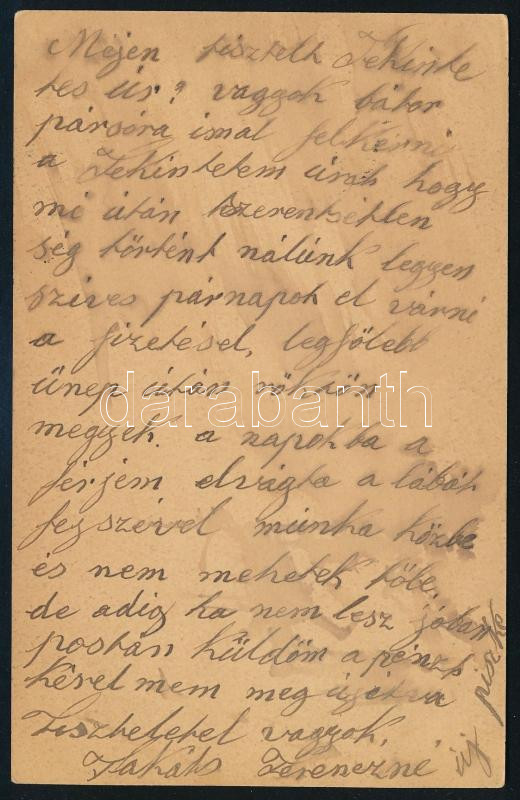 Mejen tisztelt Tekinte
tes úr? vaggok bátor
pársóra imal felkérni
a Tekintetem úrat hogy
mi után tzerentsétlen
ség történt nálúnk legyen
szíves párnapot el várni
a fizetésel, legfölebb
ünep után röktön
megyek. a napokba a
férjem elvágta a lábát
fejszével múnka közbe
és nem mehetek töle,
de adig ha nem lesz jóban
postan küldöm a pénzt
kérel mem meg
Tisztelettel vaggok,
Takáts Ferenczné
új piszke
darabanth